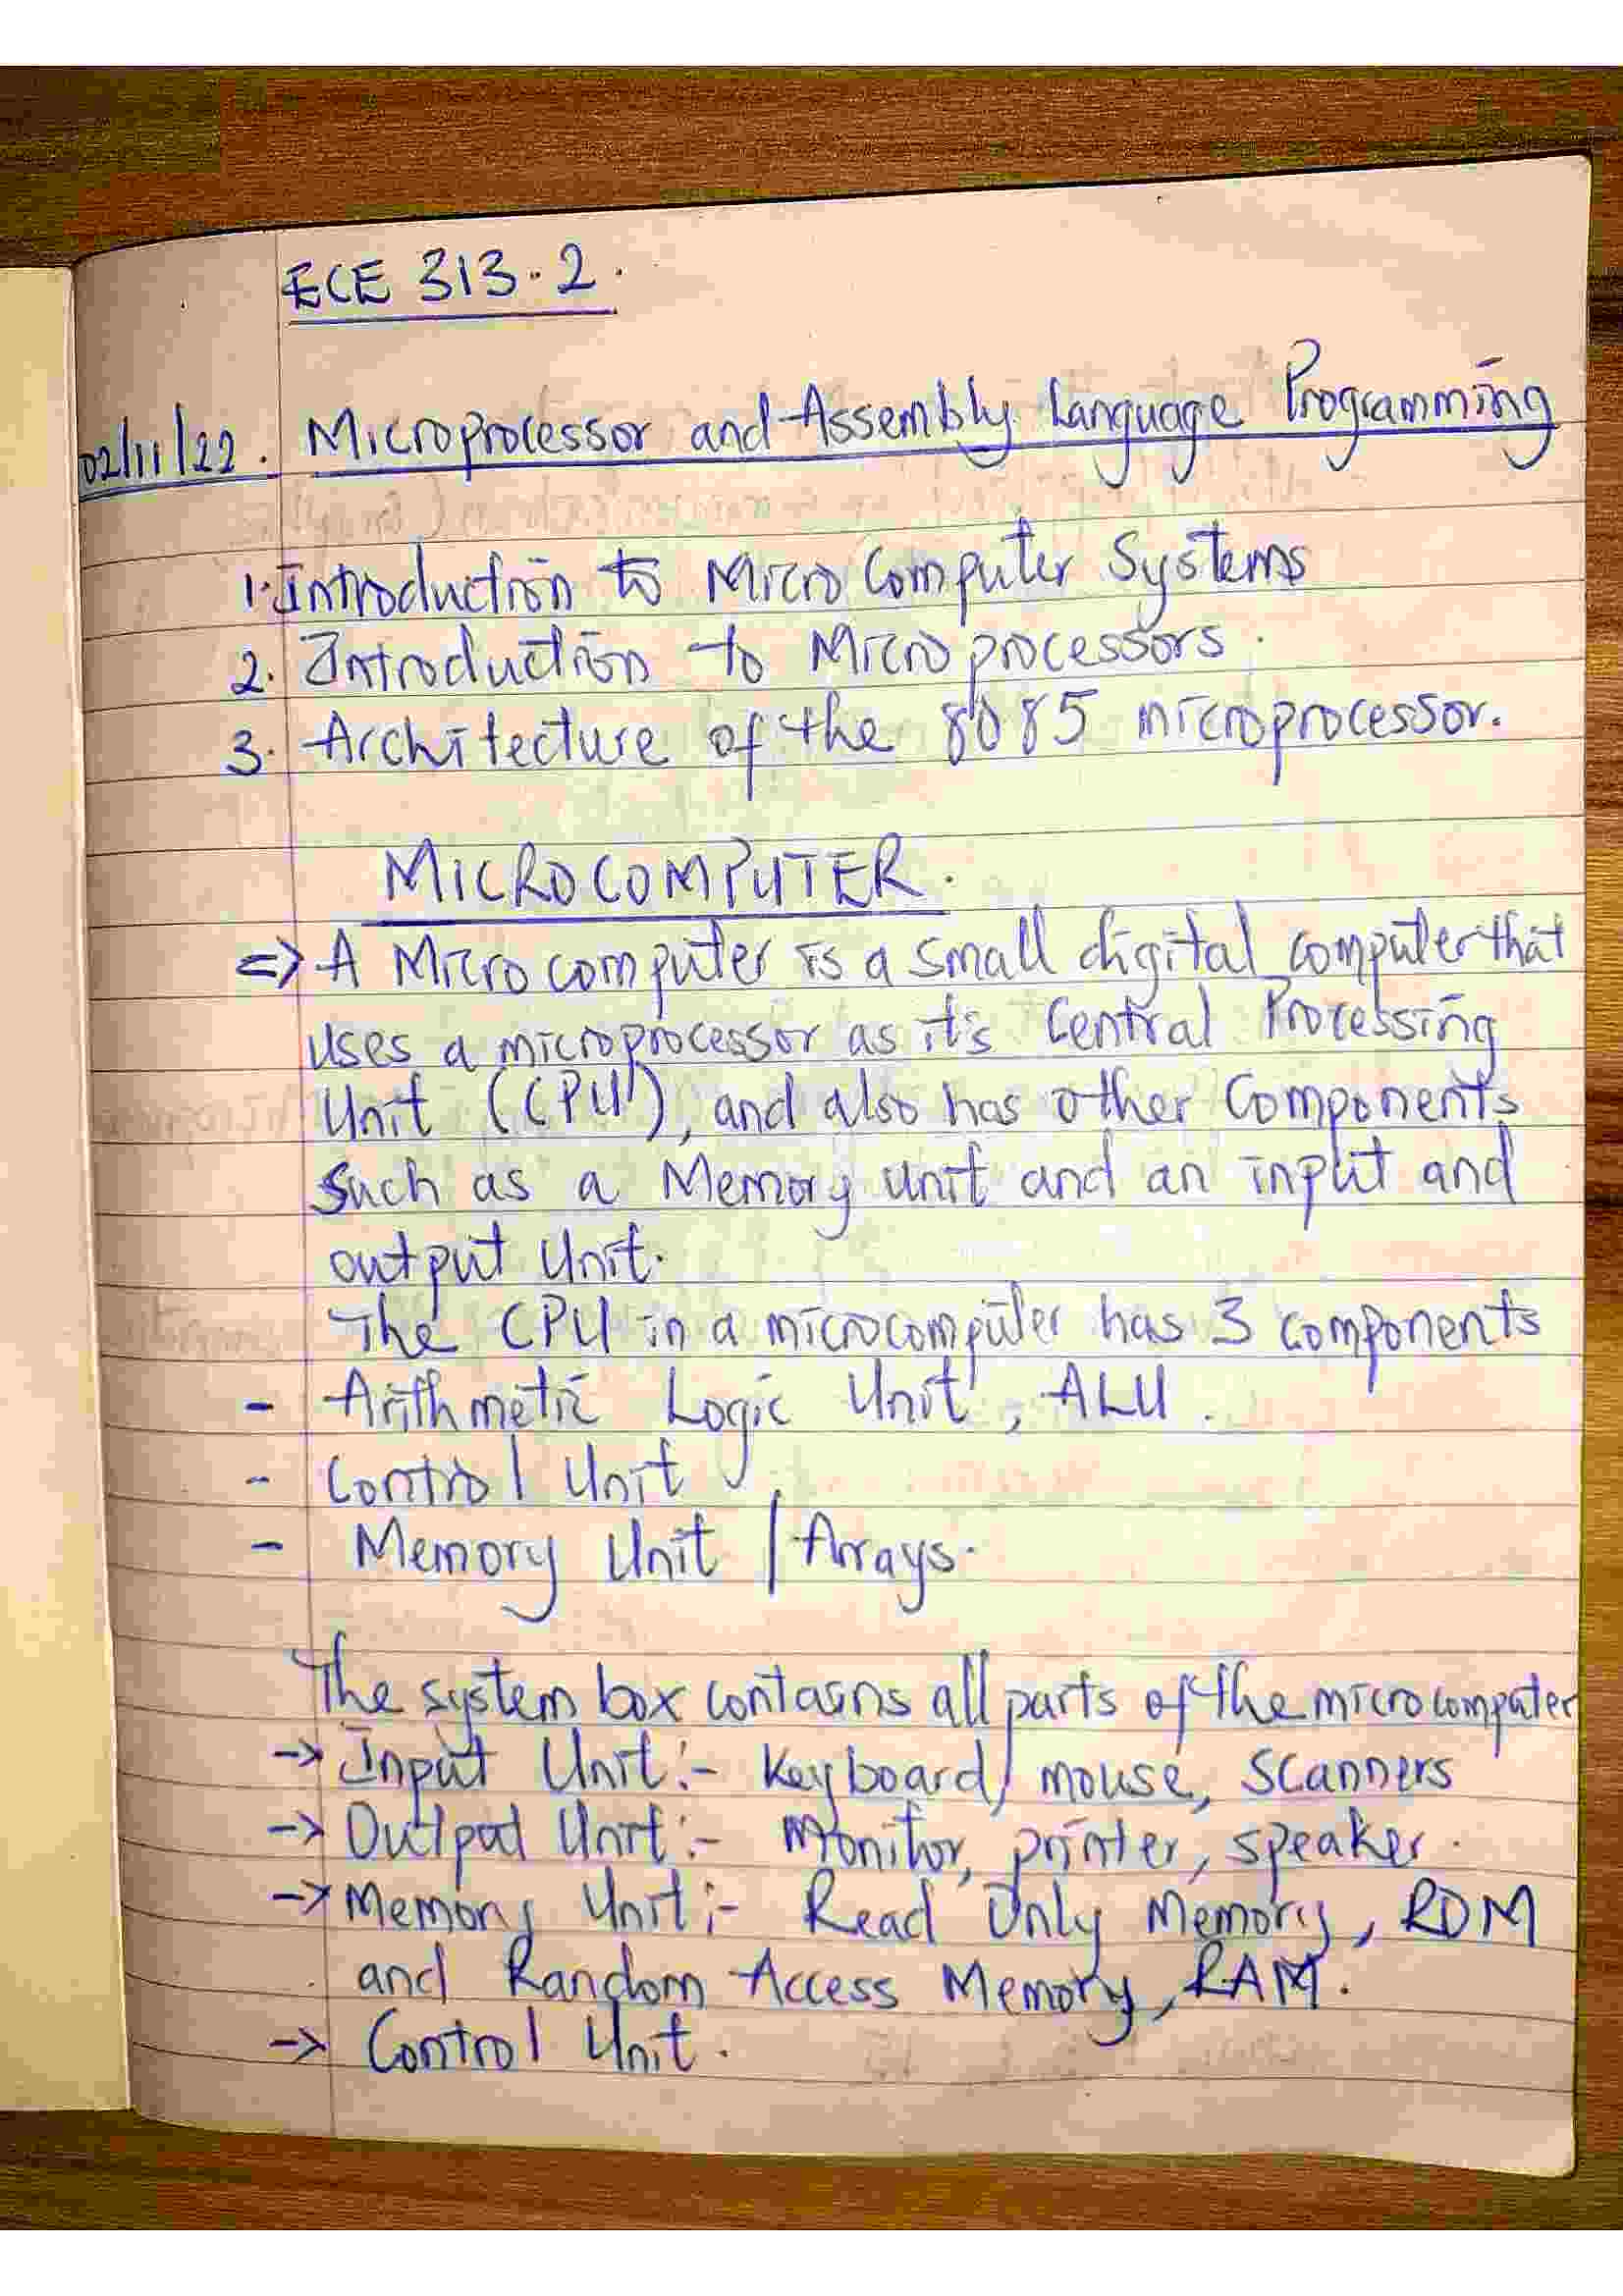 ECE 313.2.
02/11/22. Microprocessor and Assembly Language Programming
1. Introduction to Micro Computer Systems
2. Introduction to Microprocessors.
3. Architecture of the 8085 microprocessor.
MICROCOMPUTER.
=> A Microcomputer is a small digital computer that
uses a microprocessor as it's Central Processing
Unit (CPU), and also has other Components
such as a Memory unit and an input and
output unit.
The CPU in a microcomputer has 3 components
- Arithmetic Logic Unit, ALU.
- Control Unit
- Memory Unit / Arrays.
The system box contains all parts of the microcomputer
-> Input Unit:- Keyboard, mouse, scanners
-> Output Unit:- Monitor, printer, speaker.
-> Memory Unit:- Read Only Memory, ROM
and Random Access Memory, RAM.
-> Control Unit.